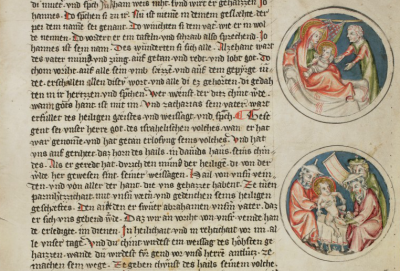 di muter. vnd spch niht svnd er wirt geheizzen jo
hannes. Do spchen si zu ir. Sin ist nieme in deinem geslæchte. der
per dem name sei genant. Do wincheten si sein vater wie er in wol
de nemen. Do vorder er ein tæflin vnd schraib also sprechend. Jo
hannes ist sein nam. Des wunderten si sich alle. Alzehant wart
des vater mund vnd zung auf getan vnd redt. vnd lobt got. Do
chom vorht auf alle sein vnd auf dem gepirge
dee. erschullen alliu diser wort. vnd alle di ez gehorten. di gedah
ten in ir hertzzen vnd spchen. Wer wenest der ditz chint wde.
wann gotes hant ist mit im. vnd zacharias sein vater wart
erfullet des heiligen geistes vnd weissagt. vnd spch. Gese
gent sei vnser herre got. des israhelischen volches. wan er hat
war genomen. vnd hat getan erlosung seines volches. vnd hat
vns auf gerihtet daz horn des hails. in dauids haus. seins chin
des. Als er geredt hat durch den mund der heilige. di von der
her gewesen sint. seiner weissagen. Hail von vnsern vein
den. vnd von aller der hant. die vns gehazzet habent. Ze tun
parmhertzichait. mit vnsern vnd gedenchen seins heiligen
geschæftes. Den aiden er swur abrahamen vnserm vater. daz
er sich vns gebend wde. Daz wir an vorht von vnser veinde han
de erledigt. im dienen. In heilichait vnd in rehtichait vor im. al
le vnser tage. vnd du chint wirdest ein weissag des hohsten ge
haizzen. wande du wirdest gend vor vnsers herren antlutz. ze
machen sein wege. Ze geben chunst des hails seinem volche